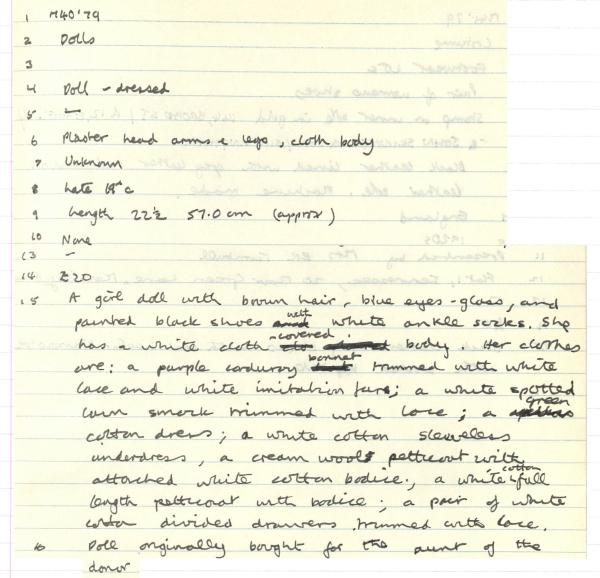 1 M40'79
2 Dolls
3
4 Doll - dressed
5 —
6 Plaster head arms & legs, cloth body
7 Unknown
8 Late 19th c
9 Length 22½ 57.0cm (approx)
10 None
13 —
14 £20
15 A girl doll with brown hair, blue eyes - glass, and
painted black shoes with white ankle socks. She
has a white cloth - covered body. Her clothes
are: a purple corduroy bonnet trimmed with white
lace and white imitation furs; a white spotted
lawn smock trimmed with lace; a green
cotton dress; a white cotton sleeveless
underdress, a cream wool petticoat with
attached white cotton bodice., a white cotton full
length petticoat with bodice; a pair of white
cotton divided drawers trimmed with lace.
16 Doll originally bought for the aunt of the
donor